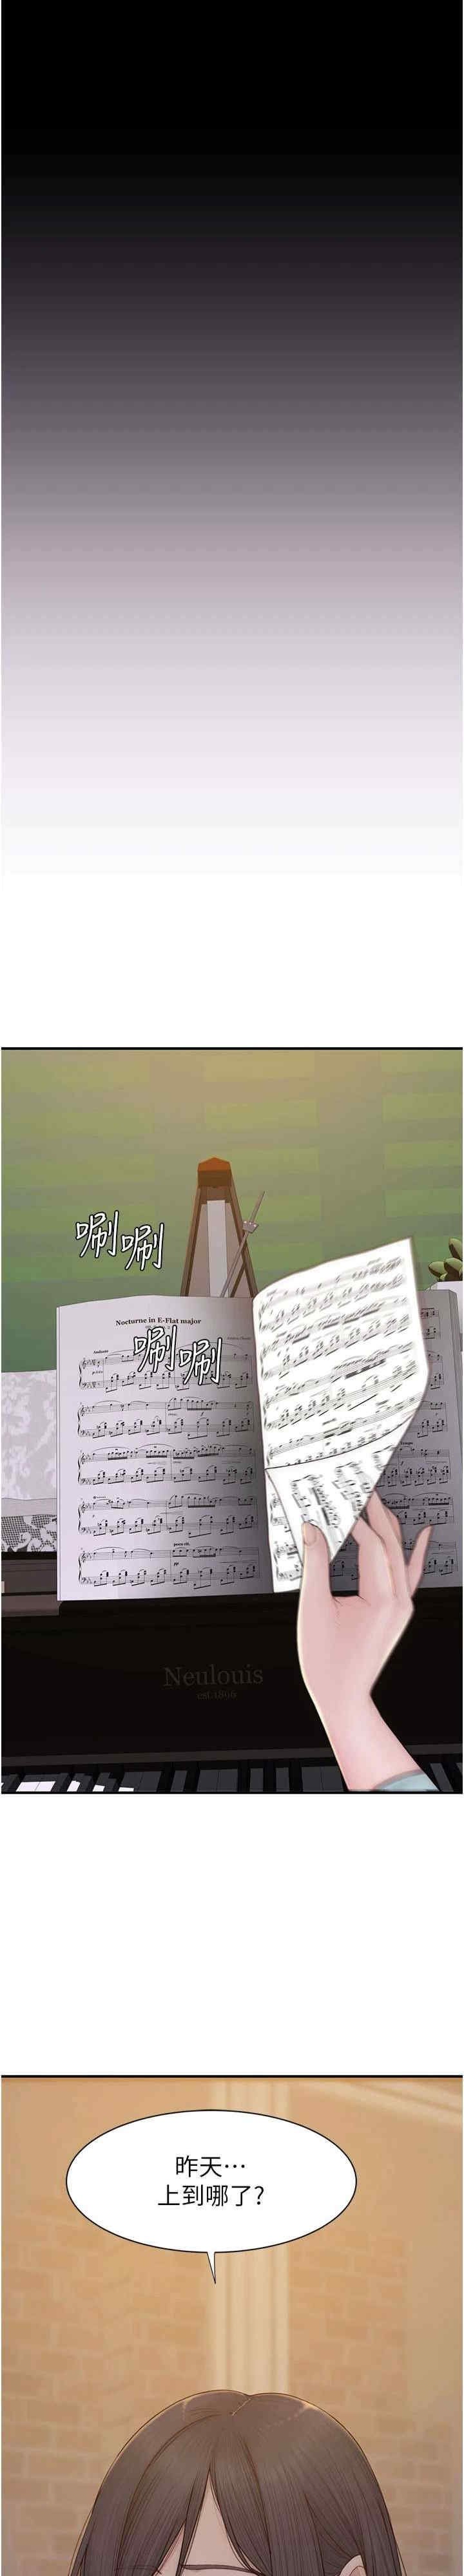 唰唰
Nocturne in E-Flat major
Andante
唰唰
poco rit.
pp
Neulouis
est.1896
昨天…
上到哪了?